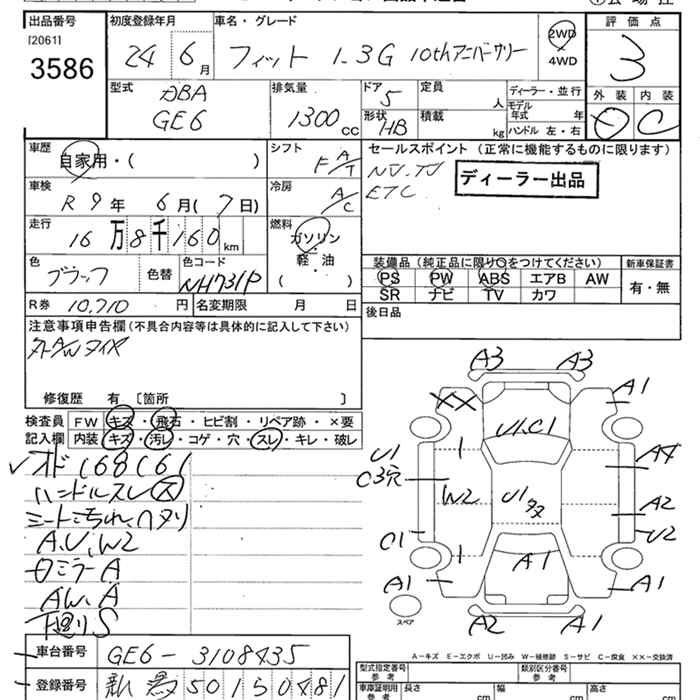 出品番号
[2061]
3586
初度登録年月
24年 6月
車名・グレード
フィット 1.3G 10thアニバーサリー
2WD
4WD
評価点
3
外装 内装
D C
型式
DBA
GE6
排気量
1300cc
ドア
5
形状
HB
定員
人
積載
kg
ディーラー・並行
モデル
年式 年
ハンドル 左・右
車歴
自家用・( )
シフト
FAT
セールスポイント (正常に機能するものに限ります)
ETC
ディーラー出品
車検
R9年 6月(7日)
冷房
A/C
走行
16万8千160km
燃料
ガソリン
軽・油
( )
色
ブラック
色替
色コード
NH731P
装備品(純正品に限り○をつけてください)
新車保証書
PS PW ABS エアB AW
SR ナビ TV カワ
有・無
R券 10,710円
名変期限 月 日
後日品
注意事項申告欄(不具合内容等は具体的に記入して下さい)
外AWタイヤ
修復歴 有[箇所 ]
検査員
記入欄
FW キズ・飛石・ヒビ割・リペア跡・×要
内装 キズ・汚レ・コゲ・穴・スレ・キレ・破レ
ハンドルスレ
シート汚れ、ヘタリ
A.U.W2
ミラーA
AW.A
下廻りS
A3 A3
A1
XX
U1.C1
U1
C3穴
W2
A4
A2
U2
C1
A1
A1
A1
A2 A1
スペア
A…キズ E…エクボ U…凹み W…補修跡 S…サビ C…腐食 ××…交換済
車台番号 GE6-3108435
登録番号 501 50481
型式指定番号
参考
類別区分番号
参考
車庫証明用
参考
長さ cm
幅 cm
高さ cm